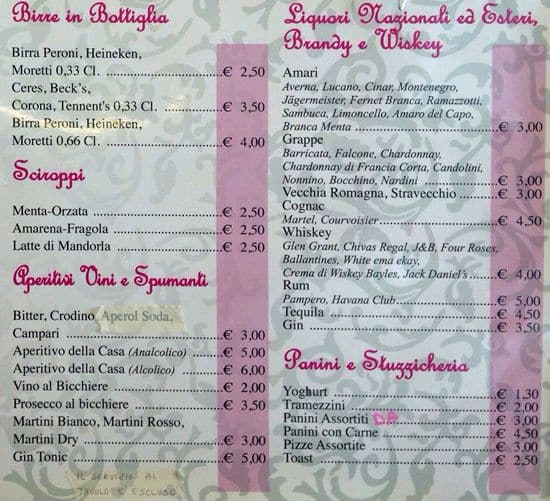 Birre in Bottiglia
Birra Peroni, Heineken,
Moretti 0,33 Cl. ........ € 2,50
Ceres, Beck's,
Corona, Tennent's 0,33 Cl. ........ € 3,50
Birra Peroni, Heineken,
Moretti 0,66 Cl. ........ € 4,00
Sciroppi
Menta-Orzata ........ € 2,50
Amarena-Fragola ........ € 2,50
Latte di Mandorla ........ € 2,50
Aperitivi Vini e Spumanti
Bitter, Crodino Aperol Soda,
Campari ........ € 3,00
Aperitivo della Casa (Analcolico) ........ € 5,00
Aperitivo della Casa (Alcolico) ........ € 6,00
Vino al Bicchiere ........ € 2,00
Prosecco al bicchiere ........ € 3,50
Martini Bianco, Martini Rosso,
Martini Dry ........ € 3,00
Gin Tonic ........ € 5,00
IL SERVIZIO AL
TAVOLO È ESCLUSO
Liquori Nazionali ed Esteri,
Brandy e Wiskey
Amari
Averna, Lucano, Cinar, Montenegro,
Jägermeister, Fernet Branca, Ramazzotti,
Sambuca, Limoncello, Amaro del Capo,
Branca Menta ........ € 3,00
Grappe
Barricata, Falcone, Chardonnay,
Chardonnay di Francia Corta, Candolini,
Nonnino, Bocchino, Nardini ........ € 3,00
Vecchia Romagna, Stravecchio ........ € 3,00
Cognac
Martel, Courvoisier ........ € 4,50
Whiskey
Glen Grant, Chivas Regal, J&B, Four Roses,
Ballantines, White ema ekay,
Crema di Wiskey Bayles, Jack Daniel's ........ € 4,00
Rum
Pampero, Havana Club ........ € 5,00
Tequila ........ € 4,50
Gin ........ € 3,50
Panini e Stuzzicheria
Yoghurt ........ € 1,30
Tramezzini ........ € 2,00
Panini Assortiti DA ........ € 3,00
Panini con Carne ........ € 4,50
Pizze Assortite ........ € 3,00
Toast ........ € 2,50